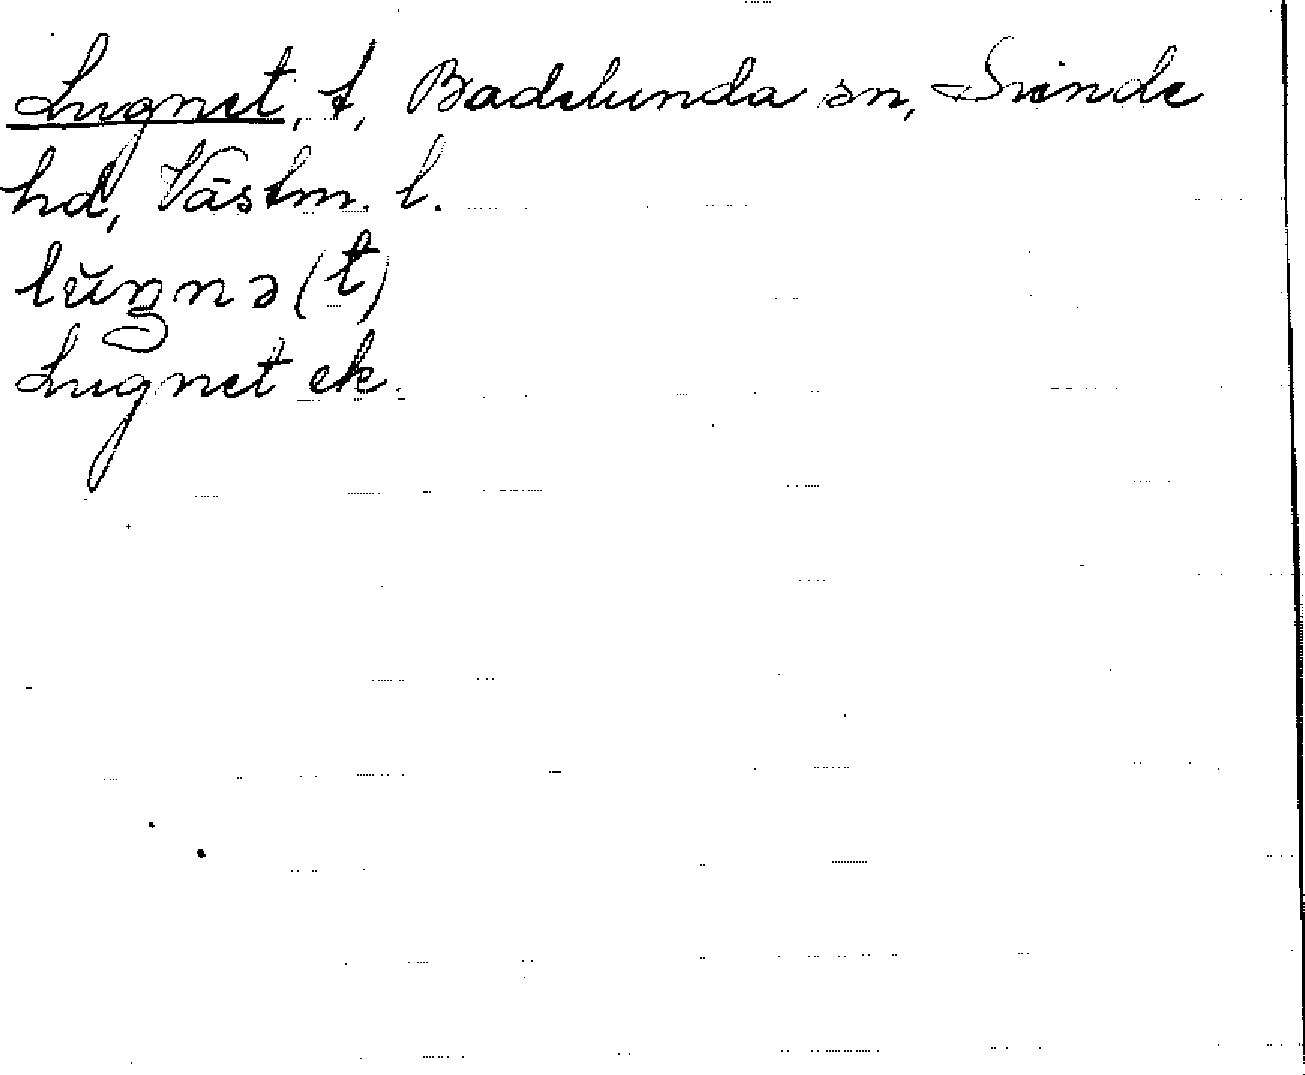 Lugnet, t, Badelunda sn, Siende
hd, Västm. l.
lŭgnə(t)
Lugnet ek.